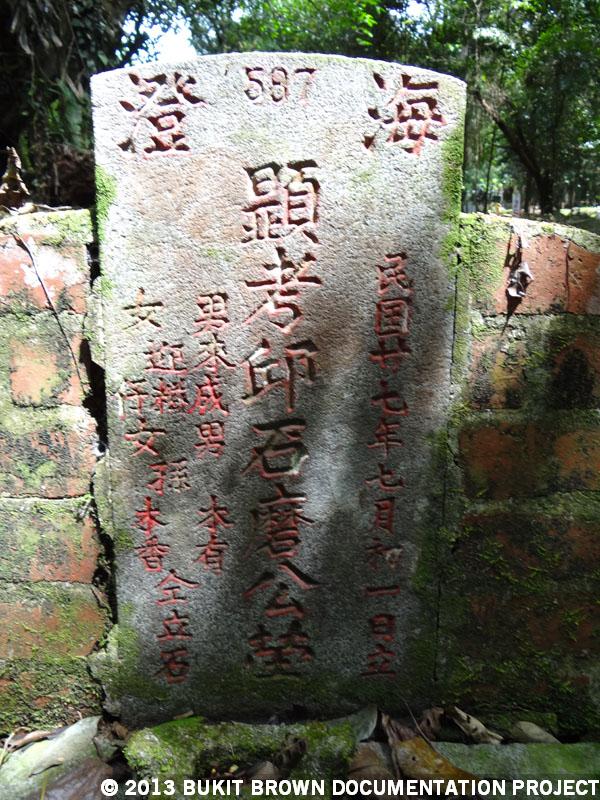 海澄
587
民国廿七年七月初一日立
顕考邱石磨公塋
男木成男孫木有
女仔女孫木香
仝立石
© 2013 BUKIT BROWN DOCUMENTATION PROJECT